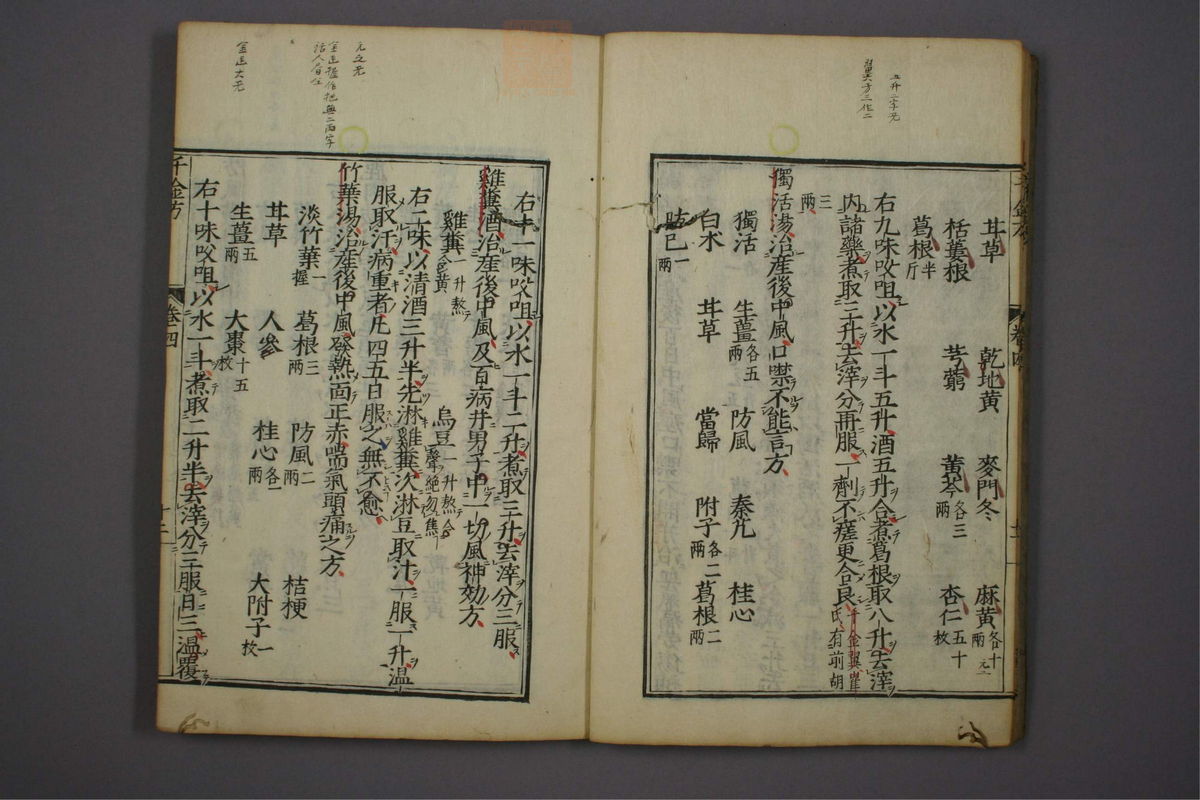 五升二字元
千金方
卷四
甘草 乾地黃 麥門冬 麻黃各十兩
栝蔞根 芎藭 黃芩各三兩 杏仁五十枚
葛根半斤
右九味㕮咀以水一斗五升酒五升合煮葛根取八升去滓
內諸藥煮取三升去滓分再服一劑不瘥更合良千金翼崔氏有前胡
三兩
獨活湯治產後中風口噤不能言方
獨活 生薑各五兩 防風 秦艽 桂心
白朮 甘草 當歸 附子各二兩 葛根二
防己一兩
右十一味㕮咀以水一斗二升煮取三升去滓分三服
雞糞酒治產後中風及百病并男子中一切風神効方
雞糞一升熬令黃 烏豆一升熬令聲絕勿焦
右二味以清酒三升半先淋雞糞次淋豆取汁一服一升溫
服取汗病重者凡四五日服之無不愈
竹葉湯治產後中風發熱面正赤喘氣頭痛之方
淡竹葉一握 葛根三兩 防風二兩 桔梗
甘草 人參 桂心各一兩 大附子一枚
生薑五兩 大棗十五枚
右十味㕮咀以水一斗煮取二升半去滓分三服日三溫覆
千金方
卷四
十二